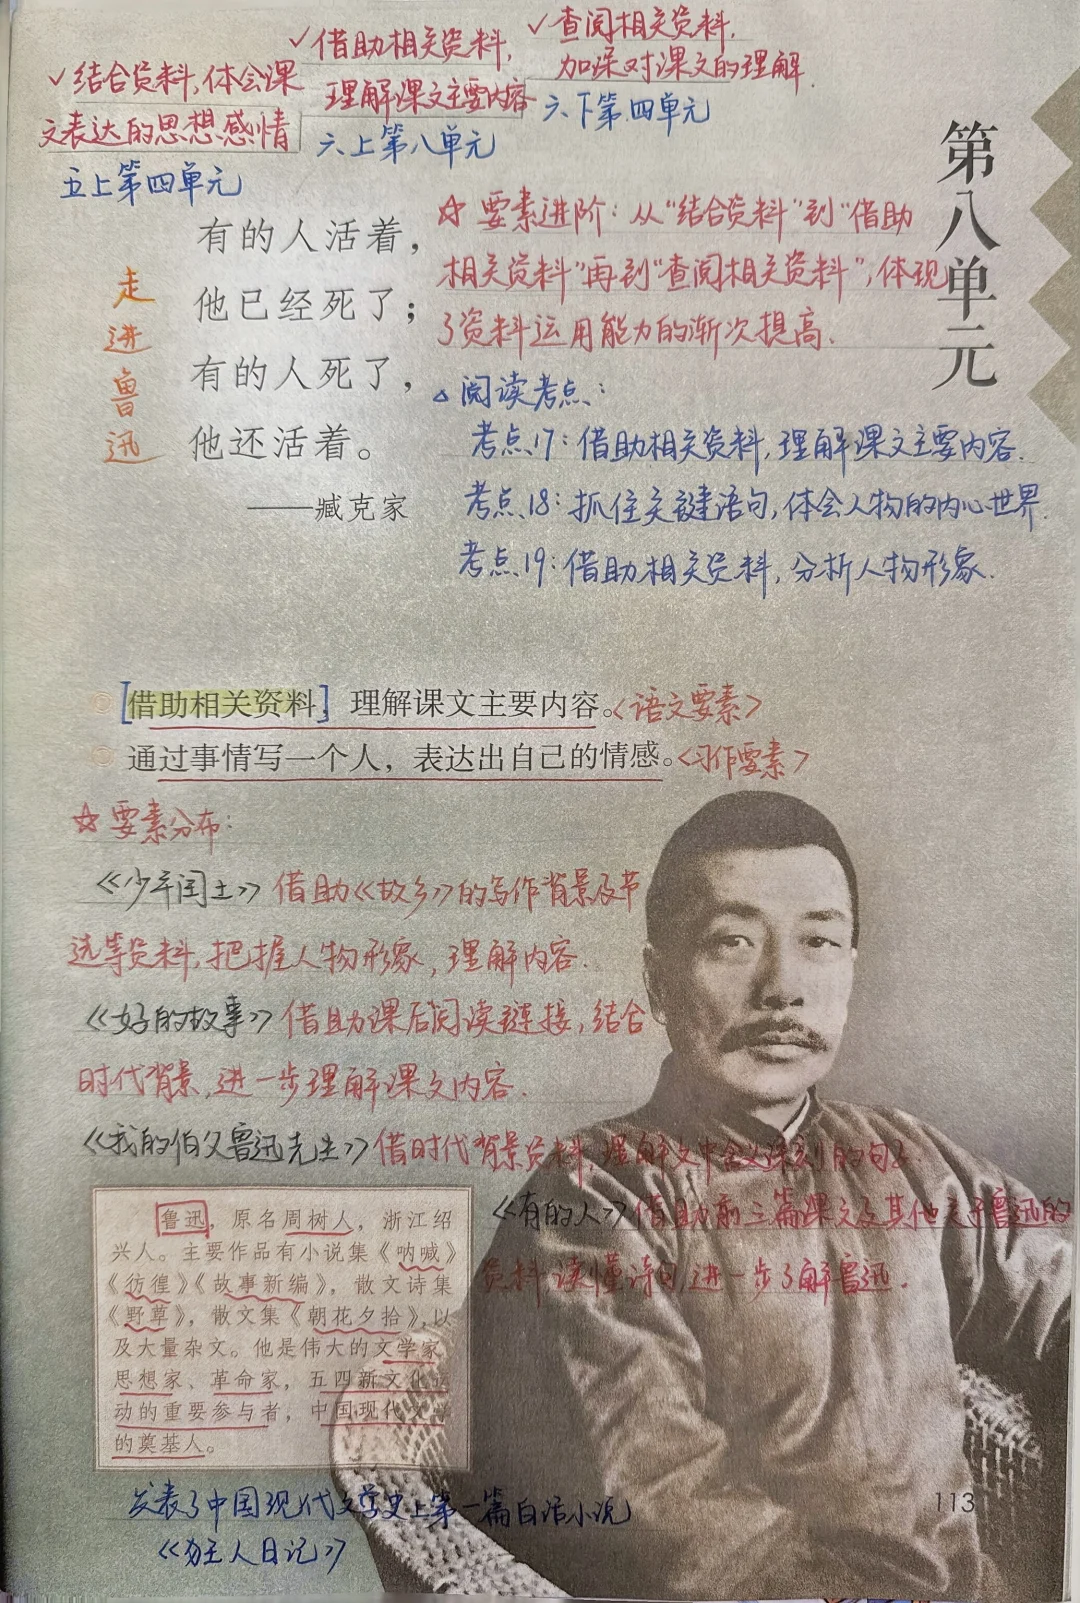 ✓结合资料,体会课
文表达的思想感情
五上第四单元
✓借助相关资料,
理解课文主要内容
六上第八单元
✓查阅相关资料,
加深对课文的理解.
六下第四单元
第八单元
走进鲁迅
有的人活着，
他已经死了；
有的人死了，
他还活着。
——臧克家
☆要素进阶：从“结合资料”到“借助
相关资料”再到“查阅相关资料”,体现
了资料运用能力的渐次提高.
△阅读考点：
考点17：借助相关资料,理解课文主要内容.
考点18：抓住关键语句,体会人物的内心世界.
考点19：借助相关资料,分析人物形象.
借助相关资料，理解课文主要内容。<语文要素>
通过事情写一个人，表达出自己的情感。<习作要素>
☆要素分布：
《少年闰土》借助《故乡》的写作背景及节
选等资料,把握人物形象,理解内容.
《好的故事》借助课后阅读链接,结合
时代背景,进一步理解课文内容.
《我的伯父鲁迅先生》借时代背景资料,理解文中含义深刻的句子.
《有的人》借助前三篇课文及其他关于鲁迅的
资料,读懂诗句,进一步了解鲁迅.
鲁迅，原名周树人，浙江绍
兴人。主要作品有小说集《呐喊》
《彷徨》《故事新编》，散文诗集
《野草》，散文集《朝花夕拾》，以
及大量杂文。他是伟大的文学家、
思想家、革命家，五四新文化运
动的重要参与者，中国现代文学
的奠基人。
发表了中国现代文学史上第一篇白话小说
《狂人日记》
113